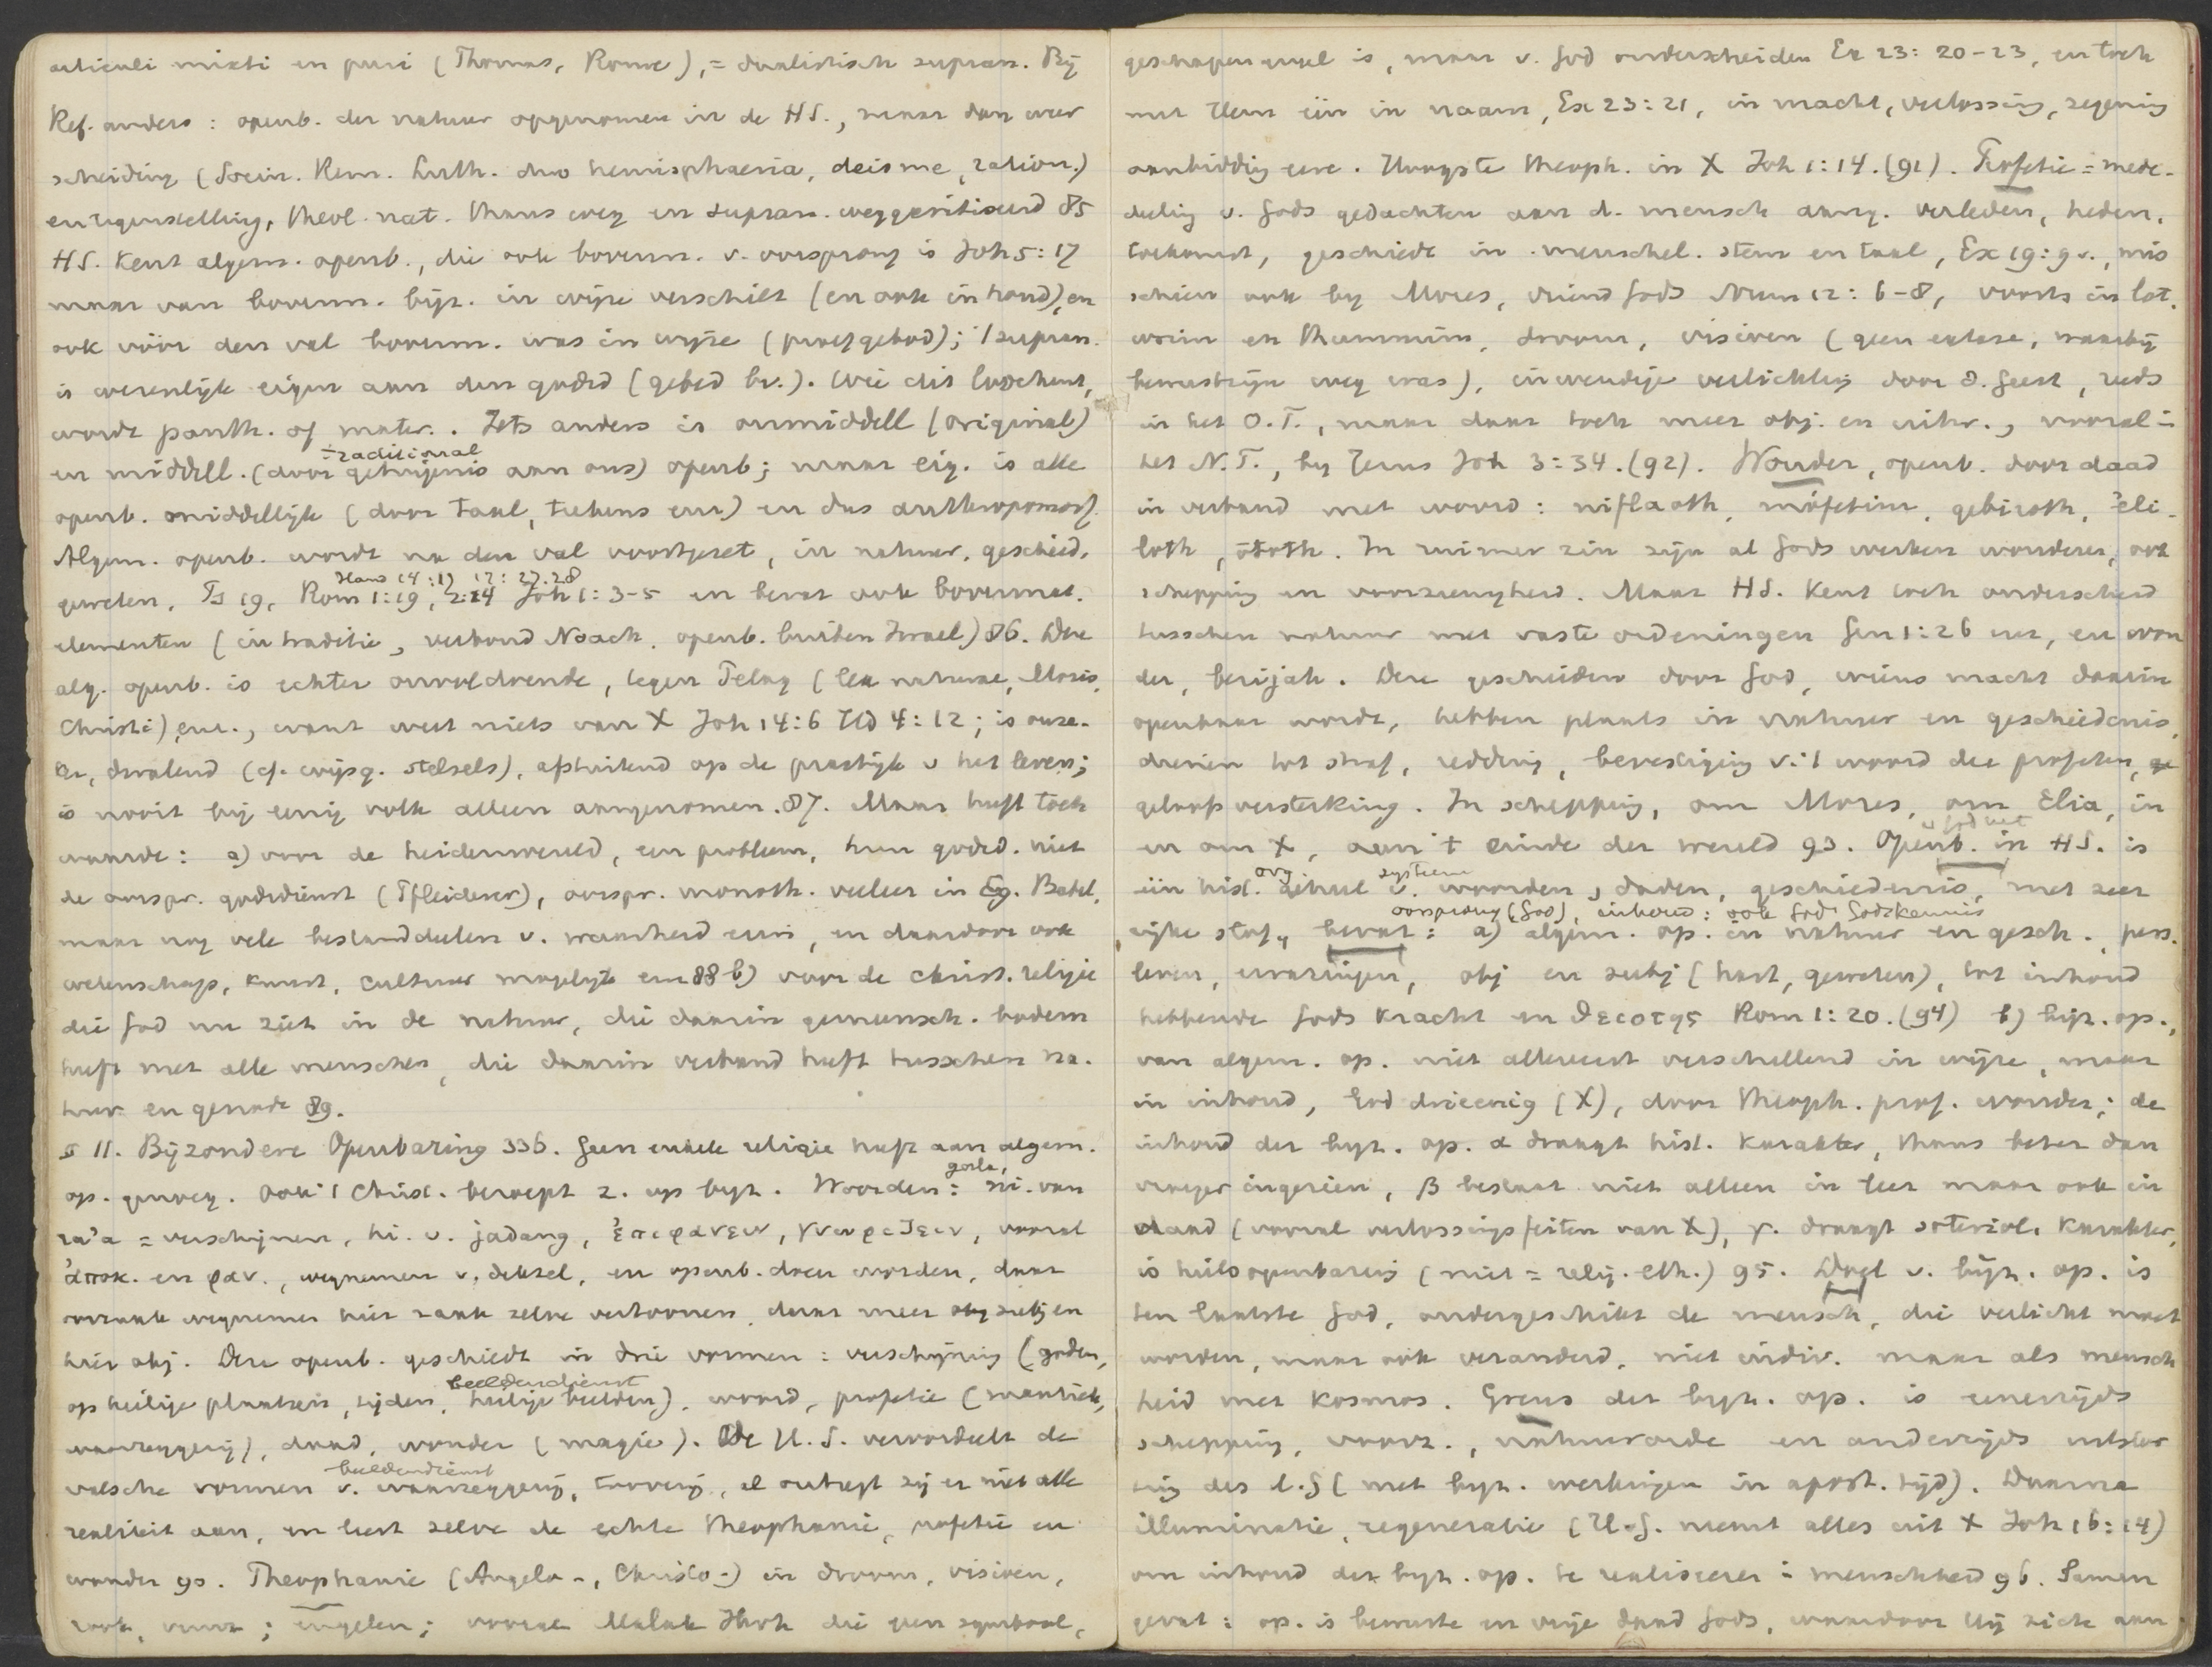 articuli mixti en puri (Thomas, Rome), = dualistisch supran. Bij
Ref. anders: openb. der natuur opgenomen in de HS., maar dan weer
scheiding (Socin. Rem. Luth. duo hemisphaeria, deisme, ration.)
en tegenstelling, theol. nat. thans weg en supran. weggecritiseerd 85
HS. Kent algem. openb., die ook bovenn. v. oorsprong is Joh 5:17
maar van bovenn. bijz. in wijze verschilt (en ook inhoud), en
ook vóór den val bovenn. was in wijze (proefgebod); 't supran.
is wezenlijk eigen aan den godsd (gebed bv.). Wie dit loochent,
wordt panth. of mater.. Iets anders is onmiddell (original)
= traditional
en middell. (door getuigenis aan ons) openb; maar eig. is alle
openb. middellijk (door taal, teekens enz) en dus anthropomorf.
Algem. openb. wordt na den val voortgezet, in natuur, geschied.
Hand 14:17 17:27.28
geweten, Ps 19, Rom 1:19, 2:14 Joh 1:3-5 en bevat ook bovennat.
elementen (in traditie, verbond Noach, openb. buiten Israel) 86. Deze
alg. openb. is echter onvoldoende, tegen Pelag (lex naturae, Mosis,
Christi) enz., want weet niets van X Joh 14:6 Hd 4:12; is onze-
ker, dwalend (cf. wijsg. stelsels), afstuitend op de practijk v het leven;
is nooit bij eenig volk alleen aangenomen. 87. Maar heeft toch
waarde: a) voor de heidenwereld, een probleem, hun godsd. niet
de oorspr. godsdienst (Pfleiderer), oorspr. monoth. veeleer in Eg. Babel,
maar nog vele bestanddeelen v. waarheid erin, en daardoor ook
wetenschap, kunst, cultuur mogelijk enz 88 b) voor de christ. religie
die God nu ziet in de natuur, die daarin gemeensch. bodem
heeft met alle menschen, die daarin verband heeft tusschen na-
tuur en genade 89.
§ 11. Bijzondere Openbaring 336. Geen enkele religie heeft aan algem.
gala,
op. genoeg. Ook 't Christ. beroept z. op bijz. Woorden: ni. van
ra'a = verschijnen, hi. v. jadang, ἐπιφανειν, γνωριζειν, vooral
ἀποκ. en φαν., wegnemen v. deksel, en openb. doen worden, daar
oorzaak wegnemen hier zaak zelve vertoonen, daar meer subj en
hier obj. Deze openb. geschiedt in drie vormen: verschijning (goden,
beeldendienst
op heilige plaatsen, tijden, heilige beelden), woord, profetie (mantiek,
waarzeggerij), daad, wonder (magie). De H.S. veroordeelt de
beeldendienst
valsche vormen v. waarzeggerij, tooverij, al ontzegt zij er niet alle
realiteit aan, en leert zelve de echte theophanie, profetie en
wonder 90. Theophanie (Angelo-, Christo-) in droom, visioen,
rook, vuur; engelen; vooral Malak Jhvh die geen symbool,
geschapen engel is, maar v. God onderscheiden Ex 23:20-23, en toch
met Hem één in naam, Ex 23:21, in macht, verlossing, zegening
aanbidding eere. Hoogste theoph. in X Joh 1:14. (91). Profetie = mede-
deeling v. Gods gedachten aan d. mensch aang. verleden, heden,
toekomst, geschiedt in menschel. stem en taal, Ex 19:9 v., mis
schien ook bij Mozes, vriend Gods Num 12:6-8, voorts in lot,
urim en thummim, droom, visioen (geen extase, waarbij
bewustzijn weg was), inwendige verlichting door d. Geest, reeds
in het O.T., maar daar toch meer obj. en uitw., vooral in
het N.T., bij Jezus Joh 3:34. (92). Wonder, openb. door daad
in verband met woord: niflaoth, mofetim, geburoth, ʿali-
loth, ōtoth. In ruimer zin zijn al Gods werken wonderen, ook
schepping en voorzienigheid. Maar HS. Kent toch onderscheid
tusschen natuur met vaste ordeningen Gen 1:26 enz, en won
der, berijah. Deze geschieden door God, wiens macht daarin
openbaar wordt, hebben plaats in natuur en geschiedenis,
dienen tot straf, redding, bevestiging v. 't woord der profeten,
geloofsversterking. In schepping, om Mozes, om Elia, in
en om X, aan 't einde der wereld 93. Openb. in HS. is
org. systeem
één hist. geheel v. woorden, daden, geschiedenis, met zeer
oorsprong (God), inhoud: ook Gods Godskennis
rijke stof, bevat: a) algem. op. in natuur en gesch., pers.
leven, ervaringen, obj en subj (hart, geweten), tot inhoud
hebbende Gods Kracht en θειοτης Rom 1:20. (94) b) bijz. op.,
van algem. op. niet allereerst verschillend in wijze, maar
in inhoud, God drieenig (X), door theoph. prof. wonder; de
inhoud der bijz. op. α draagt hist. Karakter, thans beter dan
vroeger ingezien, β bestaat niet alleen in leer maar ook in
daad (vooral verlossingsfeiten van X), γ. draagt soteriol. Karakter,
is heilsopenbaring (niet = relig. eth.) 95. Doel v. bijz. op. is
ten laatste God, ondergeschikt de mensch, die verlicht moet
worden, maar ook veranderd, niet indiv. maar als mensch
heid met Kosmos. Grens der bijz. op. is eenerzijds
schepping, voorz., natuurorde en anderzijds uitstor
ting des H.G (met bijz. werkingen in apost. tijd). Daarna
illuminatie, regeneratie (H.G. neemt alles uit X Joh 16:14)
om inhoud der bijz. op. te realiseren in menschheid 96. Samen
gevat: op. is bewuste en vrije daad Gods, waardoor Hij zich aan